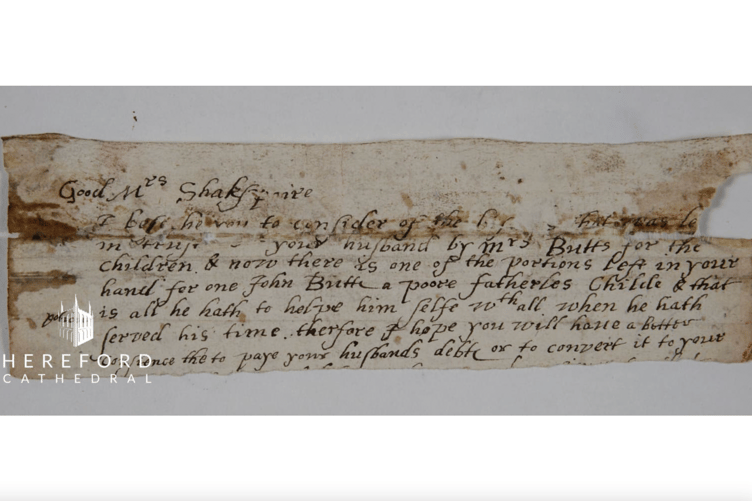 Good Mrs Shakspaire
I besече you to consider of the that was
in trust your husband by Mrs Butts for the
children & now there is one of the portions left in your
hand for one John Butte a poore fatherles Childe & that
is all he hath to helpe him selfe wthall when he hath
served his time therfore I hope you will have a better
the to paye your husbands debte or to convert it to your
HEREFORD
CATHEDRAL